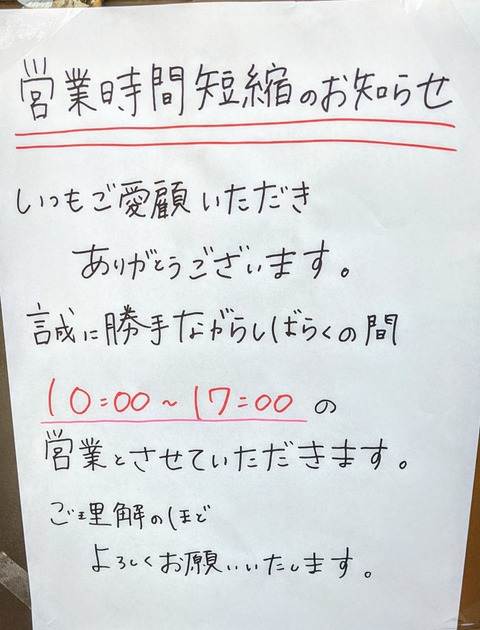 営業時間短縮のお知らせ
いつもご愛顧いただき
ありがとうございます。
誠に勝手ながらしばらくの間
10:00~17:00の
営業とさせていただきます。
ご理解のほど
よろしくお願いいたします。